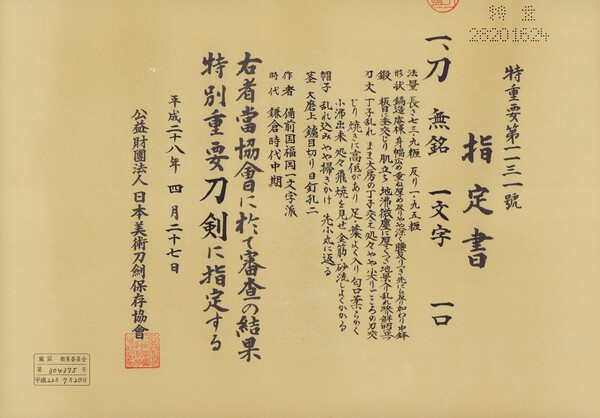 特重
28201624
特重要第一一三一號
指定書
一、刀 無銘 一文字 一口
法量 長さ七三・九糎 反り一・九五糎
形状 鎬造庵棟 身幅広め 重ね厚め 反りやや深く 腰反りつき 先にも反り加わり 中鋒
鍛 板目に杢交じり 肌立ち 地沸微塵に厚くつき 地景入り 乱れ映り鮮明に立つ
刃文 丁子乱れ まま大房の丁子交え 処々やや尖りごころの刃交
じり 焼きに高低があり 足・葉よく入り 匂口柔らかく
小沸出来 処々飛焼を見せ 金筋・砂流しよくかかる
帽子 乱れ込み やや掃きかけ 先小丸に返る
茎 大磨上 鑢目切り 目釘孔二
作者 備前国福岡一文字派
時代 鎌倉時代中期
右者當協會に於て審査の結果
特別重要刀剣に指定する
平成二十八年 四月二十七日
公益財團法人日本美術刀劍保存協會
東京 教育委員会
第 304375 号
平成22年7月20日